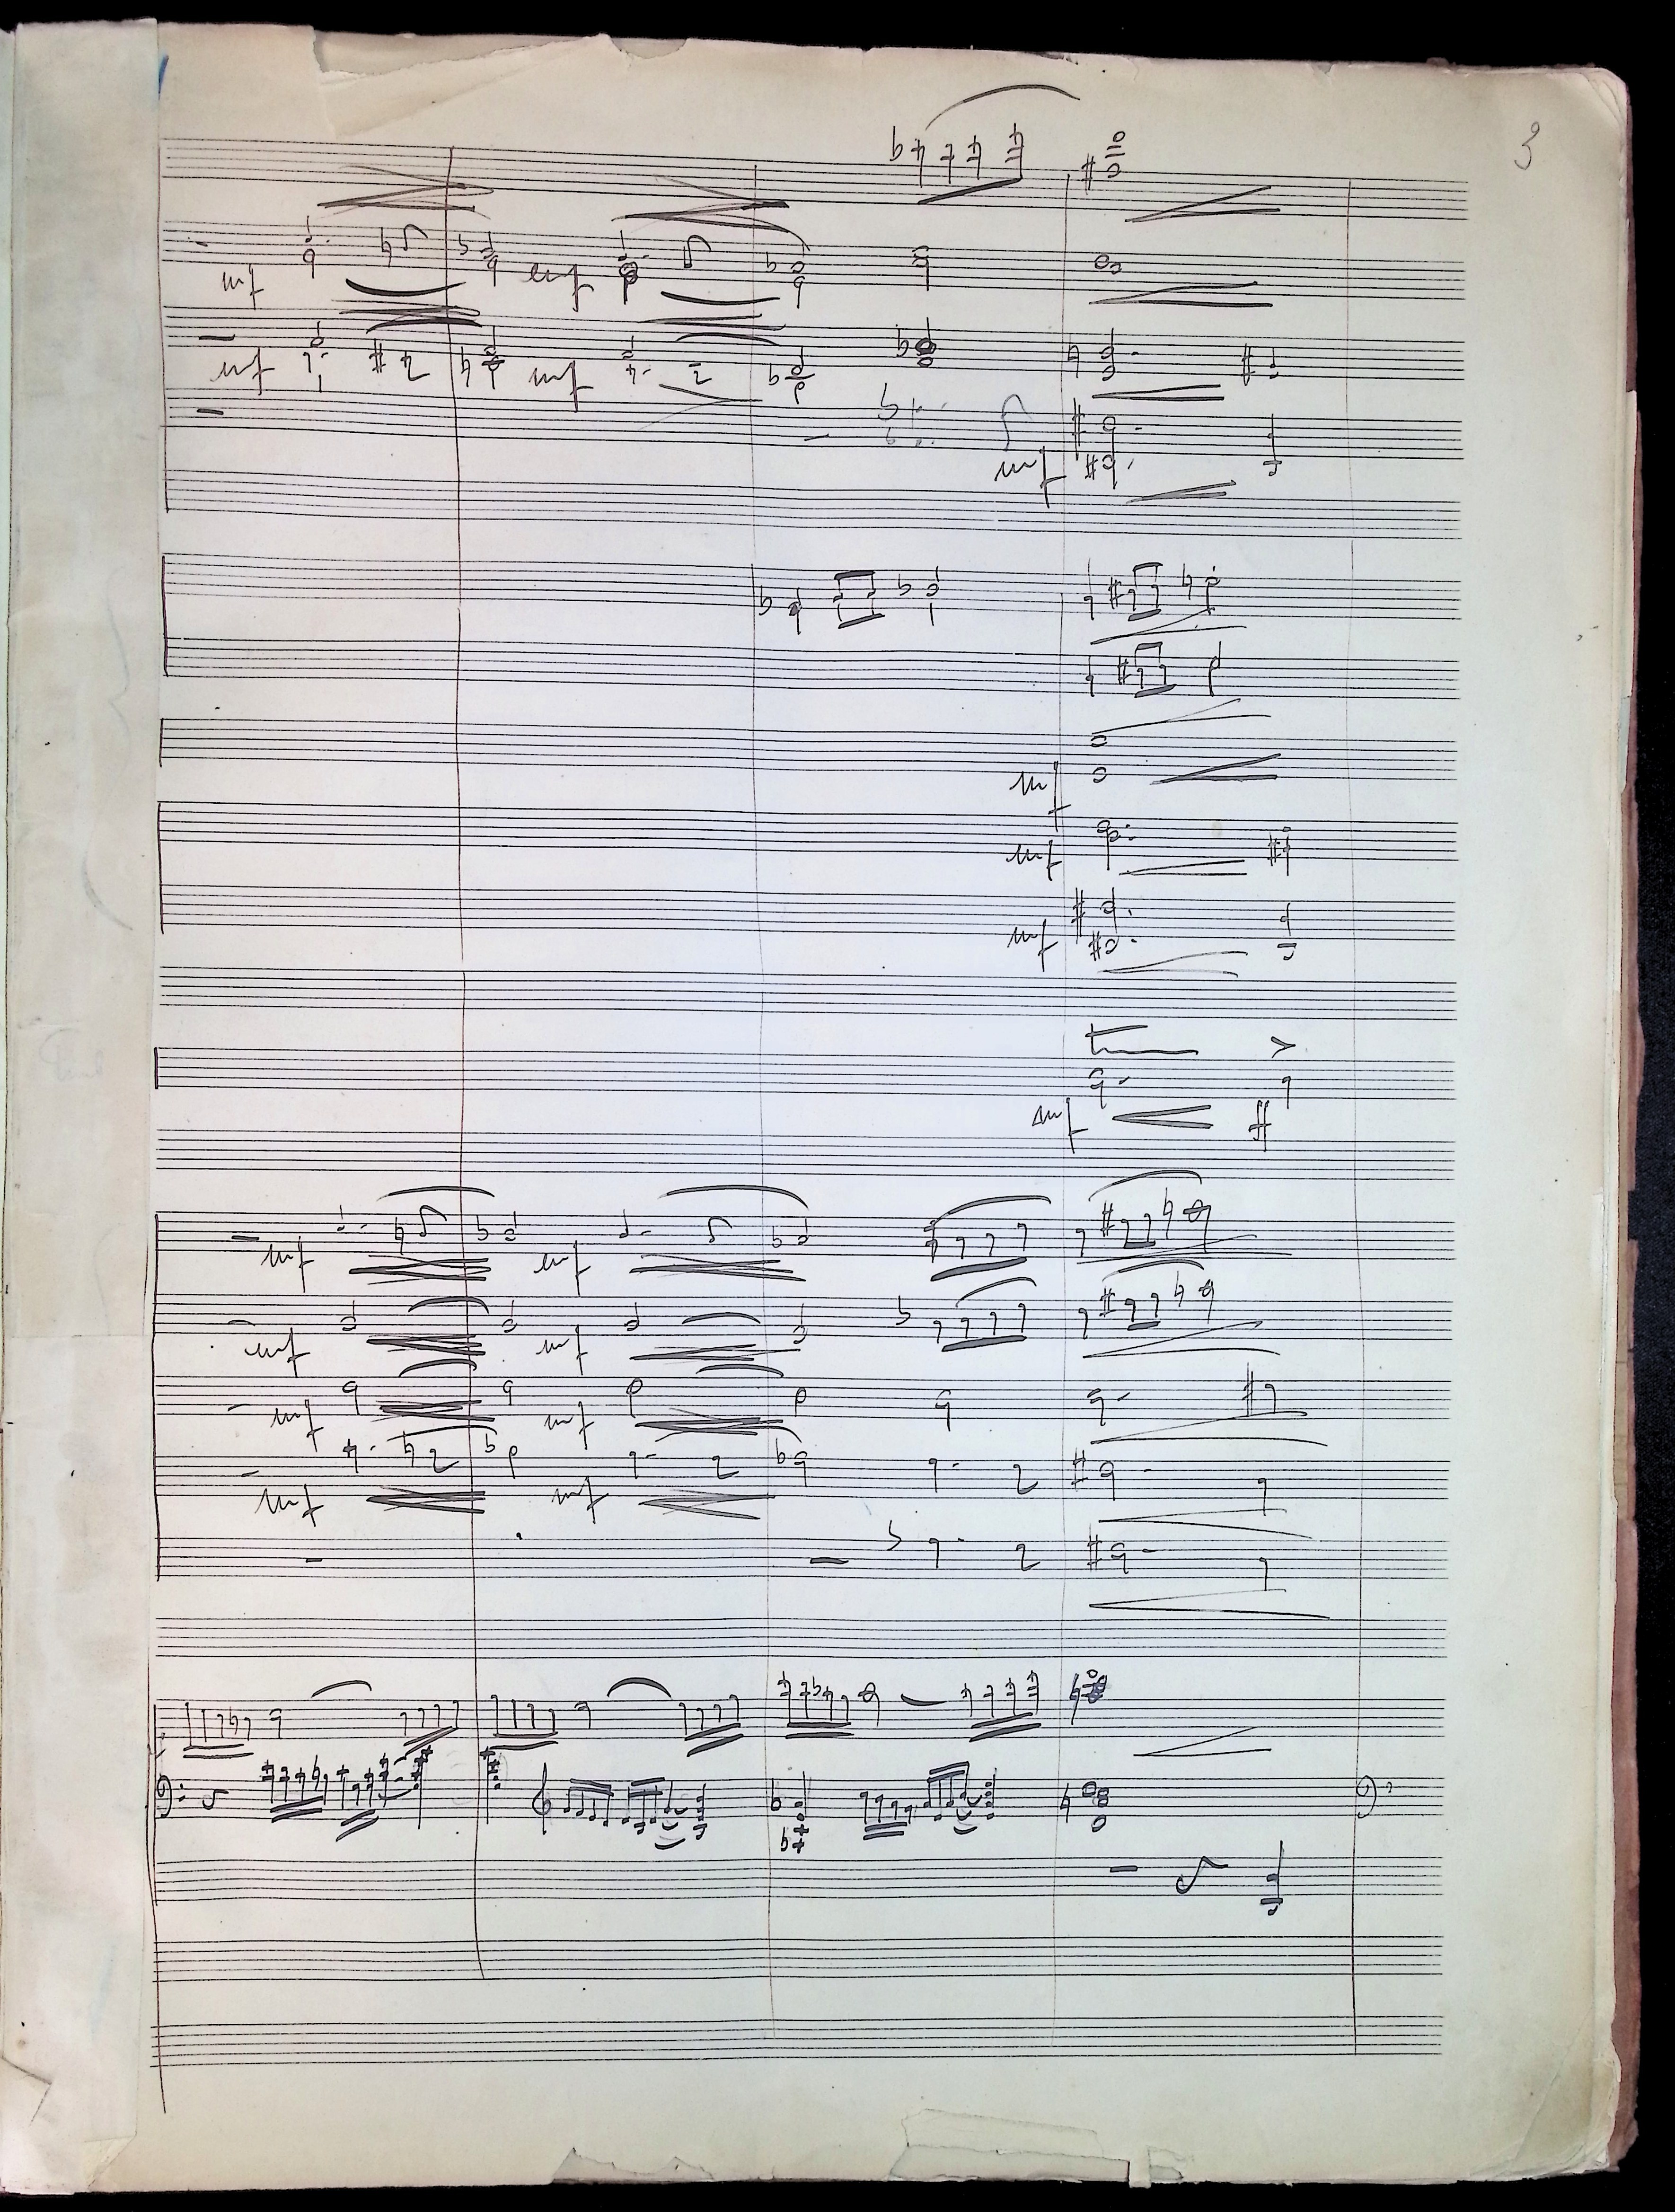 3
mf mf
mf mf
mf
mf
mf
mf
mf ff
mf mf
mf mf
mf mf
mf mf